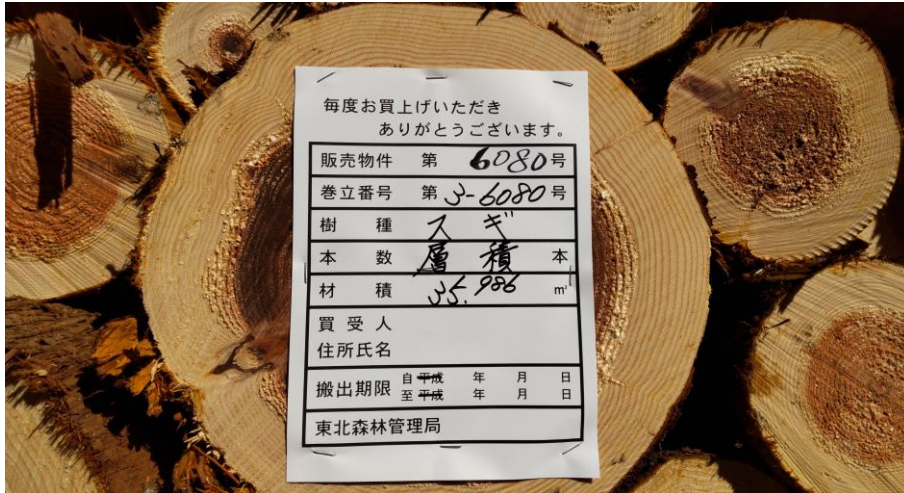 毎度お買上げいただき
ありがとうございます。
販売物件 第 6080 号
巻立番号 第 3-6080 号
樹種 スギ
本数 層積 本
材積 35.986 m³
買受人
住所氏名
搬出期限 自 平成 年 月 日
至 平成 年 月 日
東北森林管理局